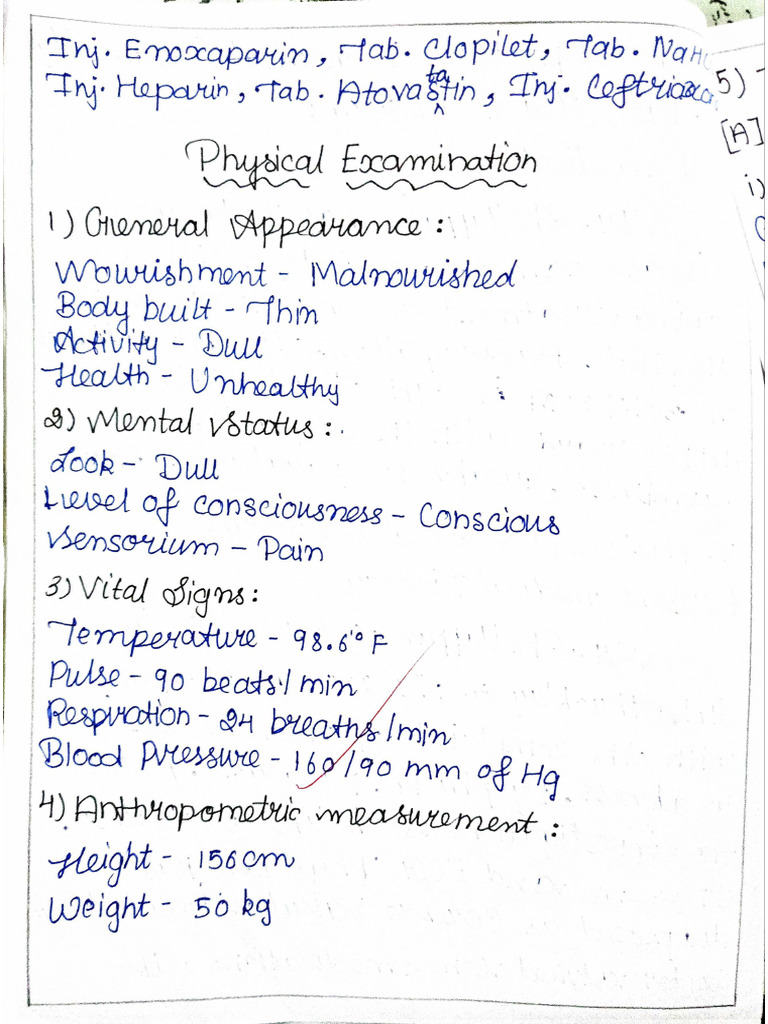 Inj. Enoxaparin, Tab. Clopilet, Tab. NaH
Inj. Heparin, Tab. Atovastatin, Inj. Ceftriaxo
Physical Examination
1) General Appearance :
Nourishment - Malnourished
Body built - Thin
Activity - Dull
Health - Unhealthy
2) Mental Status :
Look - Dull
Level of consciousness - Conscious
Sensorium - Pain
3) Vital Signs :
Temperature - 98.6° F
Pulse - 90 beats / min
Respiration - 24 breaths / min
Blood Pressure - 160/90 mm of Hg
4) Anthropometric measurement :
Height - 156 cm
Weight - 50 kg
5)
[A]
i)